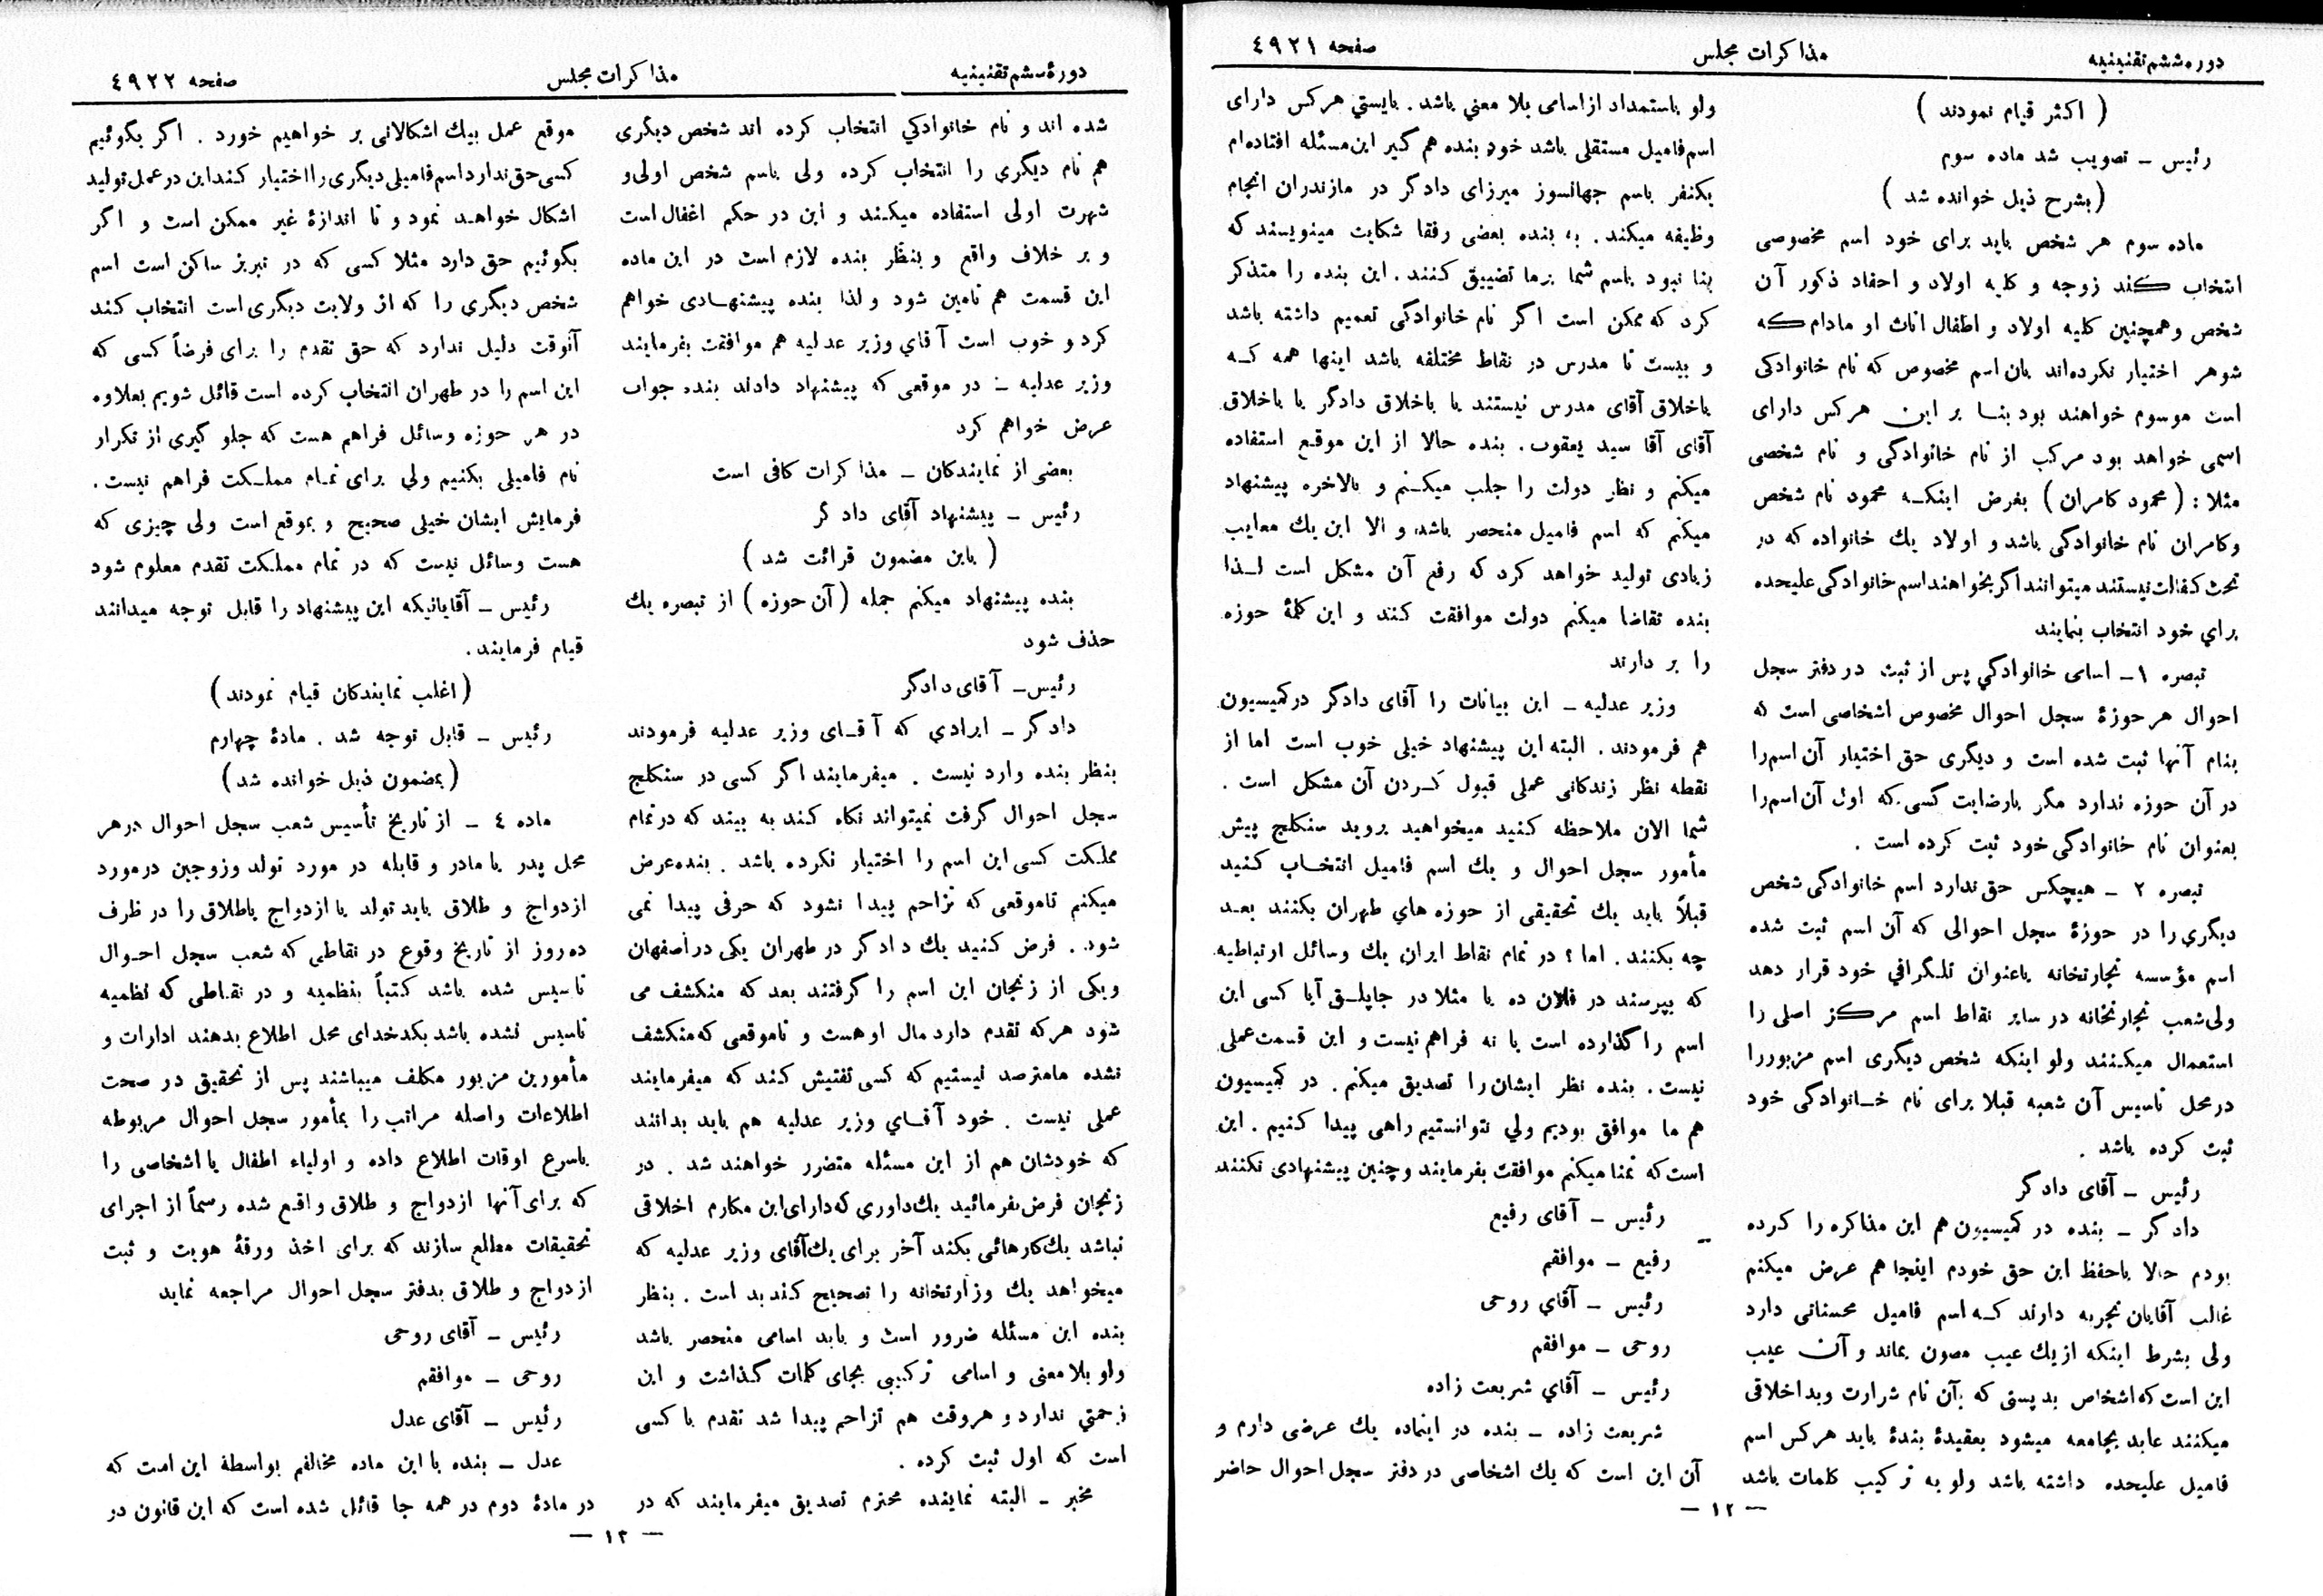 دوره ششم تقنینیه
مذاکرات مجلس
صفحه ٤٩٢١
( اکثر قیام نمودند )
رئیس ــ تصویب شد ماده سوم
(بشرح ذیل خوانده شد )
ماده سوم هر شخص باید برای خود اسم مخصوصی
انتخاب کند زوجه و کلیه اولاد و احفاد ذکور آن
شخص وهمچنین کلیه اولاد و اطفال اناث او مادام که
شوهر اختیار نکرده‌اند بان اسم مخصوص که نام خانوادگی
است موسوم خواهند بود بنا بر این هرکس دارای
اسمی خواهد بود مرکب از نام خانوادگی و نام شخصی
مثلا : ( محمود کامران ) بفرض اینکه محمود نام شخص
وکامران نام خانوادگی باشد و اولاد یك خانواده که در
تحت کفالت نیستند میتوانند اگر بخواهند اسم خانوادگی علیحده
برای خود انتخاب بنمایند
تبصره ١ــ اسامی خانوادگی پس از ثبت در دفتر سجل
احوال هر حوزهٔ سجل احوال مخصوص اشخاصی است که
بنام آنها ثبت شده است و دیگری حق اختیار آن اسم را
در آن حوزه ندارد مگر بارضایت کسی که اول آن اسم را
بعنوان نام خانوادگی خود ثبت کرده است .
تبصره ٢ ــ هیچکس حق ندارد اسم خانوادگی شخص
دیگری را در حوزهٔ سجل احوالی که آن اسم ثبت شده
اسم مؤسسه تجارتخانه یاعنوان تلگرافی خود قرار دهد
ولی شعب تجارتخانه در سایر نقاط اسم مرکز اصلی را
استعمال میکنند ولو اینکه شخص دیگری اسم مزبوررا
در محل تاسیس آن شعبه قبلا برای نام خانوادگی خود
ثبت کرده باشد .
رئیس ــ آقای دادگر
دادگر ــ بنده در کمیسیون هم این مذاکره را کرده
بودم حالا باحفظ این حق خودم اینجا هم عرض میکنم
غالب آقایان تجربه دارند که اسم فامیل محسناتی دارد
ولی بشرط اینکه از یك عیب مصون بماند و آن عیب
این است که اشخاص بد پستی که بآن نام شرارت وبد اخلاقی
میکنند عاید بجامعه میشود بعقیدهٔ بندهٔ باید هرکس اسم
فامیل علیحده داشته باشد ولو به ترکیب کلمات باشد
ولو باستمداد از اسامی بلا معنی باشد . بایستی هرکس دارای
اسم فامیل مستقلی باشد خود بنده هم گیر این مسئله افتاده‌ام
یکنفر باسم جهانسوز میرزای دادگر در مازندران انجام
وظیفه میکند . به بنده بعضی رفقا شکایت مینویسند که
بنا نبود باسم شما برما تضییق کنند . این بنده را متذکر
کرد که ممکن است اگر نام خانوادگی تعمیم داشته باشد
و بیست تا مدرس در نقاط مختلفه باشد اینها همه که
باخلاق آقای مدرس نیستند یا باخلاق دادگر یا باخلاق
آقای آقا سید یعقوب . بنده حالا از این موقع استفاده
میکنم و نظر دولت را جلب میکنم و بالاخره پیشنهاد
میکنم که اسم فامیل منحصر باشد و الا این یك معایب
زیادی تولید خواهد کرد که رفع آن مشکل است لذا
بنده تقاضا میکنم دولت موافقت کند و این کلمهٔ حوزه
را بر دارند
وزیر عدلیه ــ این بیانات را آقای دادگر در کمیسیون
هم فرمودند . البته این پیشنهاد خیلی خوب است اما از
نقطه نظر زندگانی عملی قبول کردن آن مشکل است .
شما الان ملاحظه کنید میخواهید بروید سنگلج پیش
مأمور سجل احوال و یك اسم فامیل انتخاب کنید
قبلاً باید یك تحقیقی از حوزه های طهران بکنند بعد
چه بکنند . اما ؟ در تمام نقاط ایران یك وسائل ارتباطیه
که بپرسند در فلان ده یا مثلا در جاپلق آیا کسی این
اسم را گذارده است یا نه فراهم نیست و این قسمت عملی
نیست . بنده نظر ایشان را تصدیق میکنم . در کمیسیون
هم ما موافق بودیم ولی نتوانستیم راهی پیدا کنیم . این
است که تمنا میکنم موافقت بفرمایند و چنین پیشنهادی نکنند
رئیس ــ آقای رفیع
رفیع ــ موافقم
رئیس ــ آقای روحی
روحی ــ موافقم
رئیس ــ آقای شریعت زاده
شریعت زاده ــ بنده در اینماده یك عرضی دارم و
آن این است که یك اشخاصی در دفتر سجل احوال حاضر
— ١٢ —
دورهٔ ششم تقنینیه
مذاکرات مجلس
صفحه ٤٩٢٢
شده اند و نام خانوادگی انتخاب کرده اند شخص دیگری
هم نام دیگری را انتخاب کرده ولی باسم شخص اولی و
شهرت اولی استفاده میکند و این در حکم اغفال است
و بر خلاف واقع و بنظر بنده لازم است در این ماده
این قسمت هم تامین شود و لذا بنده پیشنهادی خواهم
کرد و خوب است آقای وزیر عدلیه هم موافقت بفرمایند
وزیر عدلیه ــ در موقعی که پیشنهاد دادند بنده جواب
عرض خواهم کرد
بعضی از نمایندگان ــ مذاکرات کافی است
رئیس ــ پیشنهاد آقای دادگر
( باین مضمون قرائت شد )
بنده پیشنهاد میکنم جمله ( آن حوزه ) از تبصره یك
حذف شود
رئیس ــ آقای دادگر
دادگر ــ ایرادی که آقای وزیر عدلیه فرمودند
بنظر بنده وارد نیست . میفرمایند اگر کسی در سنگلج
سجل احوال گرفت نمیتواند نگاه کند به بیند که در تمام
مملکت کسی این اسم را اختیار نکرده باشد . بنده عرض
میکنم تا موقعی که تزاحم پیدا نشود که حرفی پیدا نمی
شود . فرض کنید یك دادگر در طهران یکی در اصفهان
ویکی از زنجان این اسم را گرفتند بعد که منکشف می
شود هرکه تقدم دارد مال اوهست و تاموقعی که منکشف
نشده مامترصد نیستیم که کسی تفتیش کند که میفرمایند
عملی نیست . خود آقای وزیر عدلیه هم باید بدانند
که خودشان هم از این مسئله متضرر خواهند شد . در
زنجان فرض بفرمائید یك داوری که دارای این مکارم اخلاقی
نباشد یك کارهائی بکند آخر برای یك آقای وزیر عدلیه که
میخواهد یك وزارتخانه را تصحیح کند بد است . بنظر
بنده این مسئله ضرور است و باید اسامی منحصر باشد
ولو بلا معنی و اسامی ترکیبی بجای کلمات گذاشت و این
زحمتی ندارد و هروقت هم تزاحم پیدا شد تقدم با کسی
است که اول ثبت کرده .
مخبر ــ البته نماینده محترم تصدیق میفرمایند که در
موقع عمل بیك اشکالاتی بر خواهیم خورد . اگر بگوئیم
کسی حق ندارد اسم فامیلی دیگری را اختیار کند این در عمل تولید
اشکال خواهد نمود و تا اندازهٔ غیر ممکن است و اگر
بگوئیم حق دارد مثلا کسی که در تبریز ساکن است اسم
شخص دیگری را که از ولایت دیگری است انتخاب کند
آنوقت دلیل ندارد که حق تقدم را برای فرضاً کسی که
این اسم را در طهران انتخاب کرده است قائل شویم بعلاوه
در هر حوزه وسائل فراهم هست که جلو گیری از تکرار
نام فامیلی بکنیم ولی برای تمام مملکت فراهم نیست .
فرمایش ایشان خیلی صحیح و بموقع است ولی چیزی که
هست وسائل نیست که در تمام مملکت تقدم معلوم شود
رئیس ــ آقایانیکه این پیشنهاد را قابل توجه میدانند
قیام فرمایند .
(اغلب نمایندگان قیام نمودند)
رئیس ــ قابل توجه شد . مادهٔ چهارم
(بمضمون ذیل خوانده شد)
ماده ٤ ــ از تاریخ تأسیس شعب سجل احوال در هر
محل پدر یا مادر و قابله در مورد تولد وزوجین در مورد
ازدواج و طلاق باید تولد یا ازدواج یاطلاق را در ظرف
ده روز از تاریخ وقوع در نقاطی که شعب سجل احوال
تاسیس شده باشد کتباً بنظمیه و در نقاطی که نظمیه
تاسیس نشده باشد بکدخدای محل اطلاع بدهند ادارات و
مأمورین مزبور مکلف میباشند پس از تحقیق در صحت
اطلاعات واصله مراتب را بمأمور سجل احوال مربوطه
باسرع اوقات اطلاع داده و اولیاء اطفال یا اشخاصی را
که برای آنها ازدواج و طلاق واقع شده رسماً از اجرای
تحقیقات مطلع سازند که برای اخذ ورقهٔ هویت و ثبت
ازدواج و طلاق بدفتر سجل احوال مراجعه نماید
رئیس ــ آقای روحی
روحی ــ موافقم
رئیس ــ آقای عدل
عدل ــ بنده با این ماده مخالفم بواسطهٔ این است که
در مادهٔ دوم در همه جا قائل شده است که این قانون در
— ١٣ —